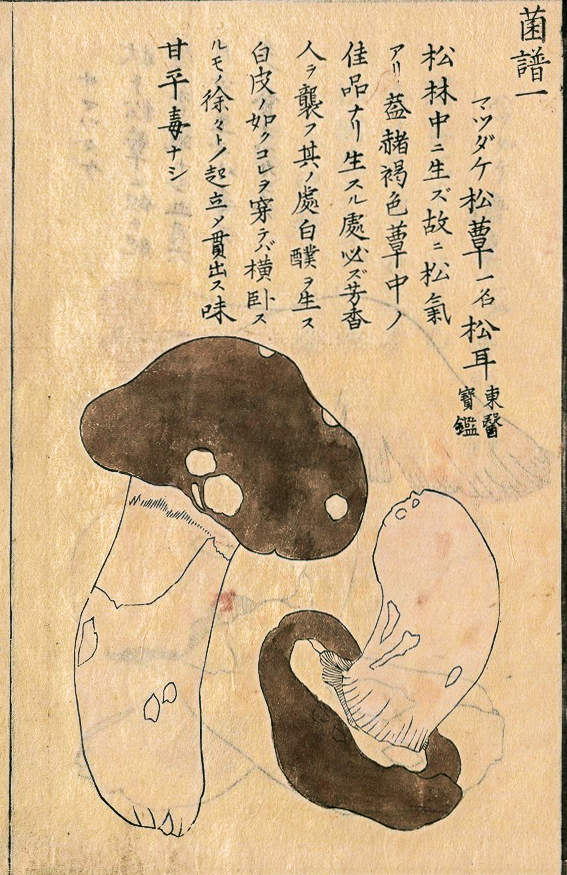 菌譜一
マツダケ 松蕈 一名 松耳 東醫寶鑑
松林中ニ生ズ故ニ松氣
アリ葢赭褐色蕈中ノ
佳品ナリ生スル處必ズ芳香
人ヲ襲フ其ノ處白醭ヲ生ス
白皮ノ如クコレヲ穿テバ横臥ス
ルモノ徐々ト乄起立乄貫出ス味
甘平毒ナシ